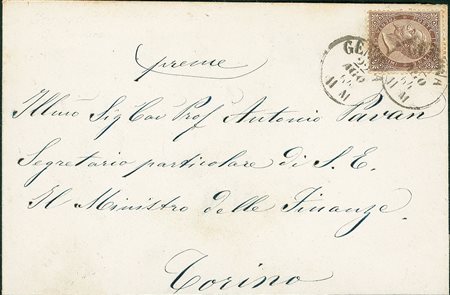 preme
GENOVA
AGO
11 M
Illmo Sig Cav Prof Antonio Pavan
Segretario particolare di S. E.
Il Ministro delle Finanze.
Torino